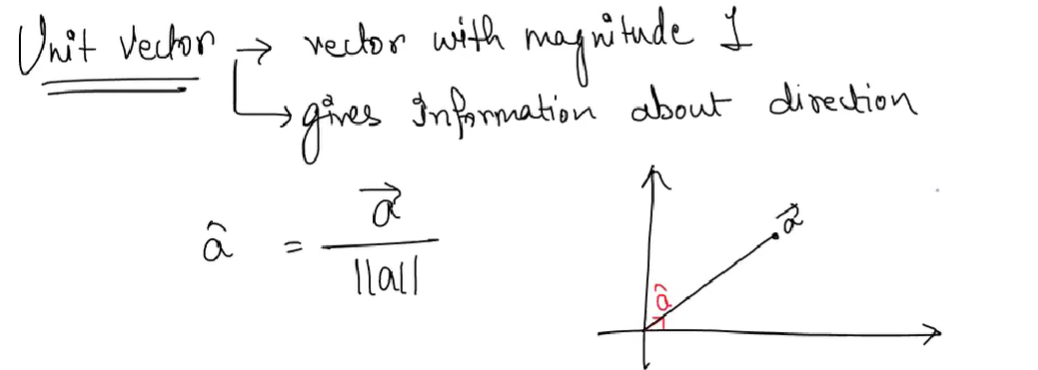 Unit Vector → vector with magnitude 1
→ gives Information about direction
â = a⃗ / ||a||
a⃗
â